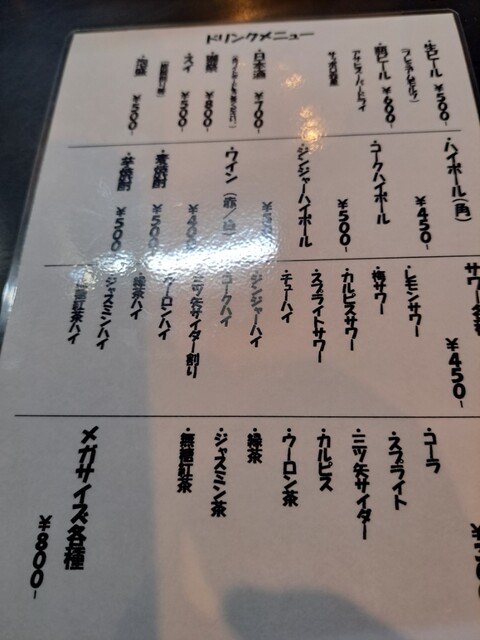 ドリンクメニュー
・生ビール ¥500-
・瓶ビール ¥600-
アサヒスーパードライ
・日本酒 ¥700-
¥800-
・スイ ¥500-
¥500-
・ハイボール(角) ¥450-
・コークハイボール ¥500-
・ジンジャーハイボール
・ワイン(赤/白)
・麦焼酎 ¥500-
・芋焼酎 ¥500-
サワー各種 ¥450-
・レモンサワー
・梅サワー
・カルピスサワー
・スプライトサワー
・チューハイ
・ジンジャーハイ
・コークハイ
・三ツ矢サイダー割り
・ウーロンハイ
・緑茶ハイ
・ジャスミンハイ
・無糖紅茶ハイ
・コーラ
・スプライト
・三ツ矢サイダー
・カルピス
・ウーロン茶
・緑茶
・ジャスミン茶
・無糖紅茶
メガサイズ各種 ¥800-